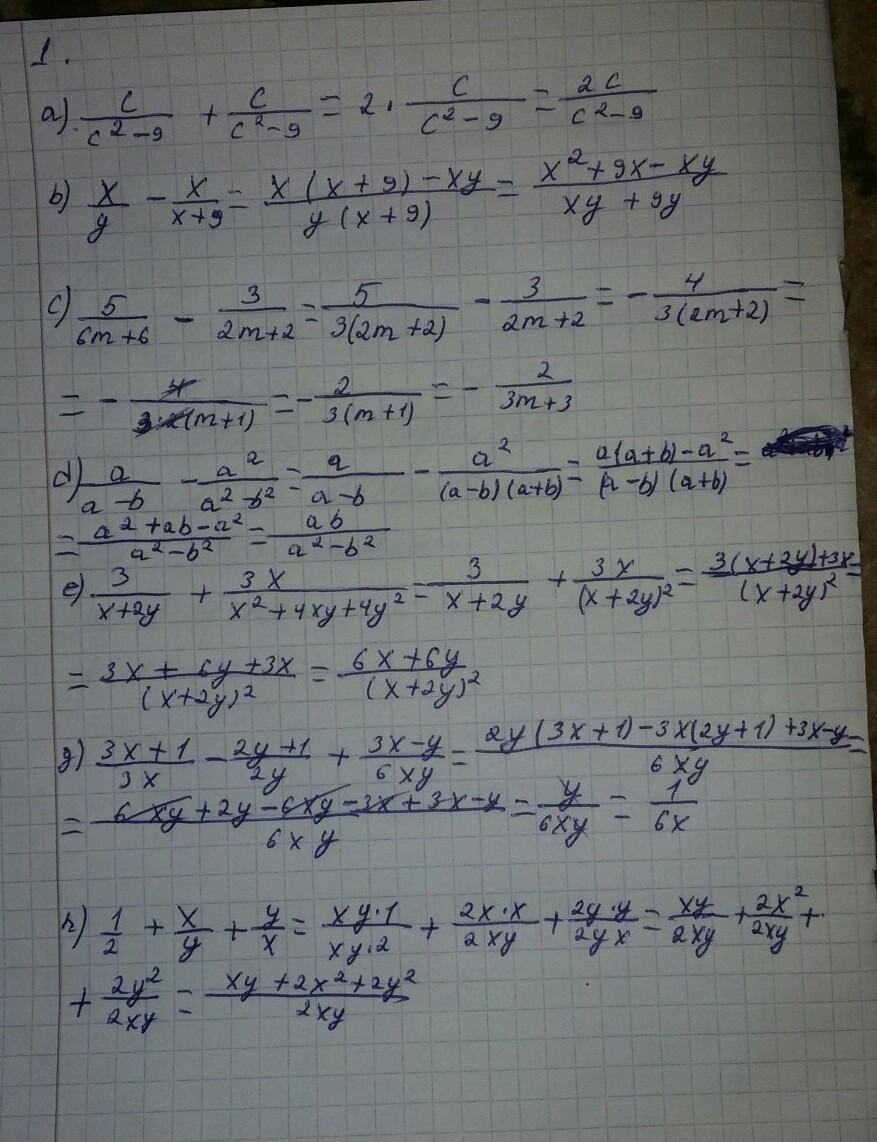 1.
a) c/(c²-9) + c/(c²-9) = 2 · c/(c²-9) = 2c/(c²-9)
b) x/y - x/(x+9) = (x(x+9)-xy)/(y(x+9)) = (x²+9x-xy)/(xy+9y)
c) 5/(6m+6) - 3/(2m+2) = 5/(3(2m+2)) - 3/(2m+2) = - 4/(3(2m+2)) =
= - 4/(3·2(m+1)) = - 2/(3(m+1)) = - 2/(3m+3)
d) a/(a-b) - a²/(a²-b²) = a/(a-b) - a²/((a-b)(a+b)) = (a(a+b)-a²)/((a-b)(a+b)) =
= (a²+ab-a²)/(a²-b²) = ab/(a²-b²)
e) 3/(x+2y) + 3x/(x²+4xy+4y²) = 3/(x+2y) + 3x/(x+2y)² = (3(x+2y)+3x)/(x+2y)² =
= (3x+6y+3x)/(x+2y)² = (6x+6y)/(x+2y)²
g) (3x+1)/3x - (2y+1)/2y + (3x-y)/6xy = (2y(3x+1)-3x(2y+1)+3x-y)/6xy =
= (6xy+2y-6xy-3x+3x-y)/6xy = y/6xy = 1/6x
h) 1/2 + x/y + y/x = (xy·1)/(xy·2) + (2x·x)/2xy + (2y·y)/2yx = xy/2xy + 2x²/2xy +
+ 2y²/2xy = (xy+2x²+2y²)/2xy